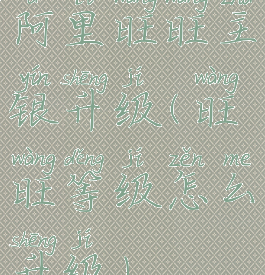 阿里旺旺主
yín shēng jí wàng
银升级(旺
wàng děng jí zěn me
旺等级怎么
shēng jí
升级)